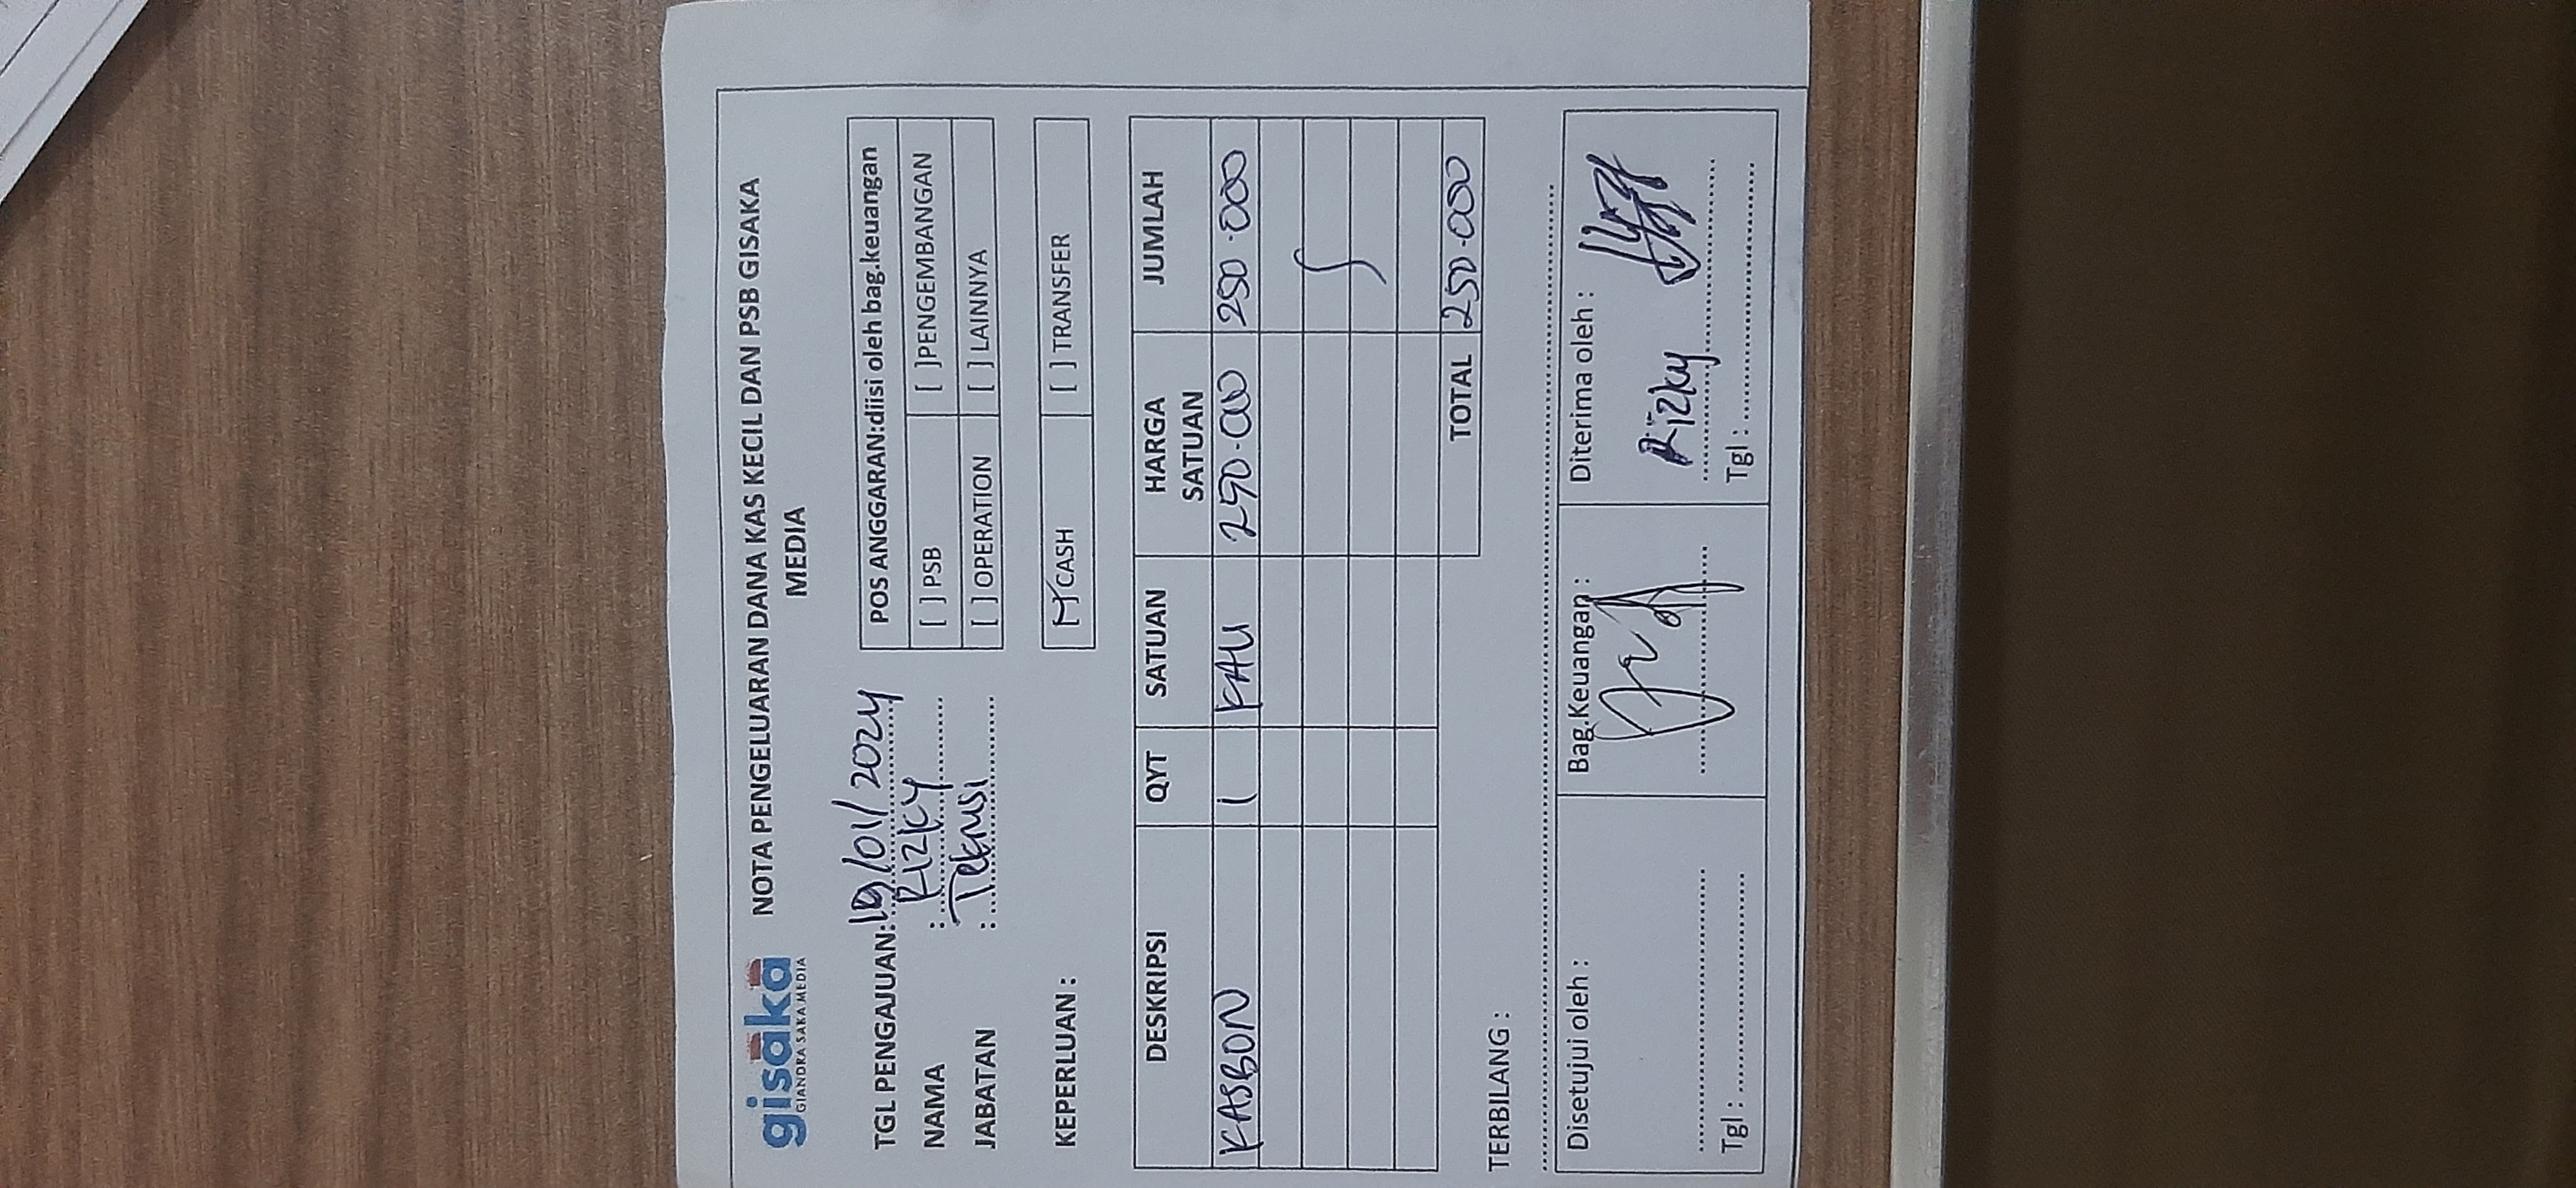 gisaka
GIANDRA SAKA MEDIA
NOTA PENGELUARAN DANA KAS KECIL DAN PSB GISAKA
MEDIA
TGL PENGAJUAN: 19/01/2024
NAMA : Rizky
JABATAN : Teknisi
POS ANGGARAN:diisi oleh bag.keuangan
[ ] PSB [ ]PENGEMBANGAN
[ ] OPERATION [ ] LAINNYA
KEPERLUAN :
[✓] CASH [ ] TRANSFER
DESKRIPSI QYT SATUAN HARGA SATUAN JUMLAH
KASBON 1 KALI 250.000 250.000
TOTAL 250.000
TERBILANG :
Disetujui oleh : Bag.Keuangan : Diterima oleh :
Rizky
Tgl : Tgl :